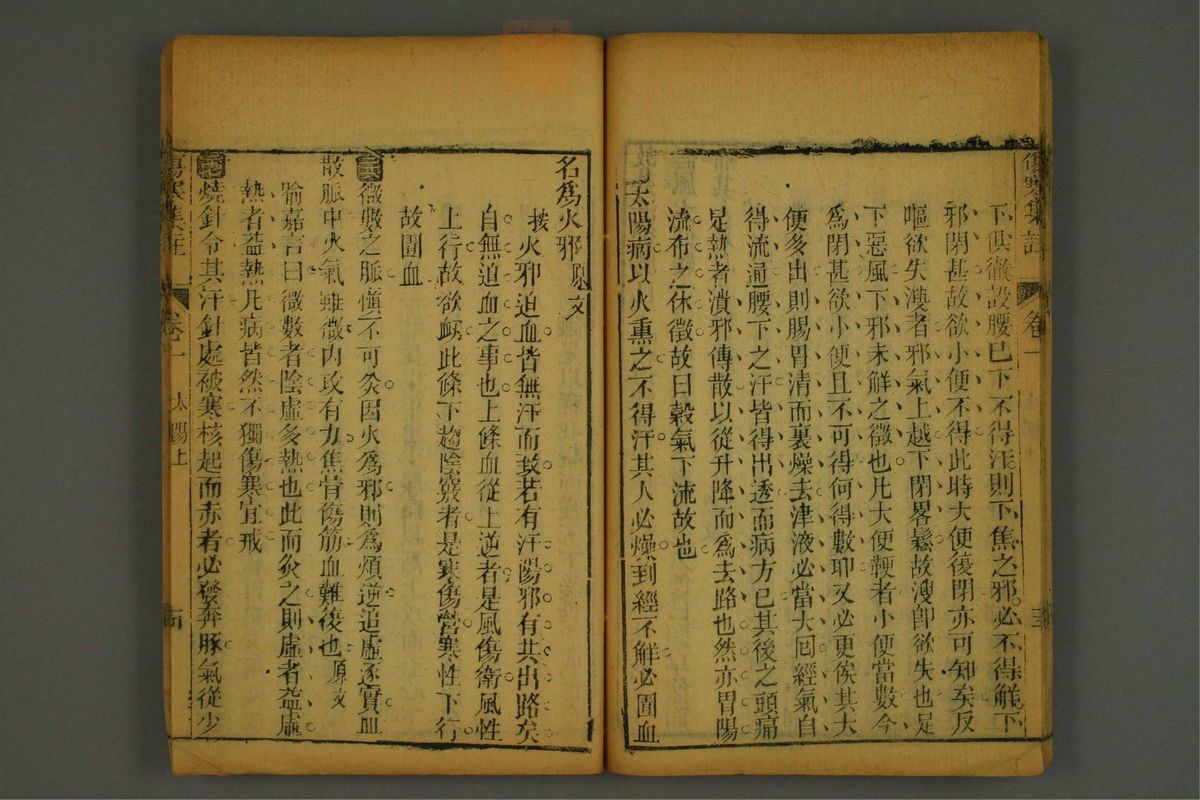 傷寒集註 卷一 三
下俱微設腰已下不得汗則下焦之邪必不得解下
邪閉甚故欲小便不得此時大便復閉亦可知矣反
嘔欲失溲者邪氣上越下閉畧鬆故溲卽欲失也足
下惡風下邪未解之徵也凡大便鞕者小便當數今
爲閉甚欲小便且不可得何得數耶又必更俟其大
便多出則腸胃清而裏燥去津液必當大回經氣自
得流通腰下之汗皆得出透而病方已其後之頭痛
足熱者潰邪傳散以從升降而爲去路也然亦胃陽
流布之休徵故曰穀氣下流故也
太陽病以火熏之不得汗其人必燥到經不解必圊血
名爲火邪原文
按火邪迫血皆無汗而致若有汗陽邪有其出路矣
自無迫血之事也上條血從上逆者是風傷衛風性
上行故欲衂此條下趨陰竅者是寒傷營寒性下行
故圊血
微數之脈愼不可灸因火爲邪則爲煩逆追虛逐實血
散脈中火氣雖微內攻有力焦骨傷筋血難復也原文
喻嘉言曰微數者陰虛多熱也此而灸之則虛者益虛
熱者益熱凡病皆然不獨傷寒宜戒
燒針令其汗針處被寒核起而赤者必發奔豚氣從少
傷寒集註 卷一 太陽上